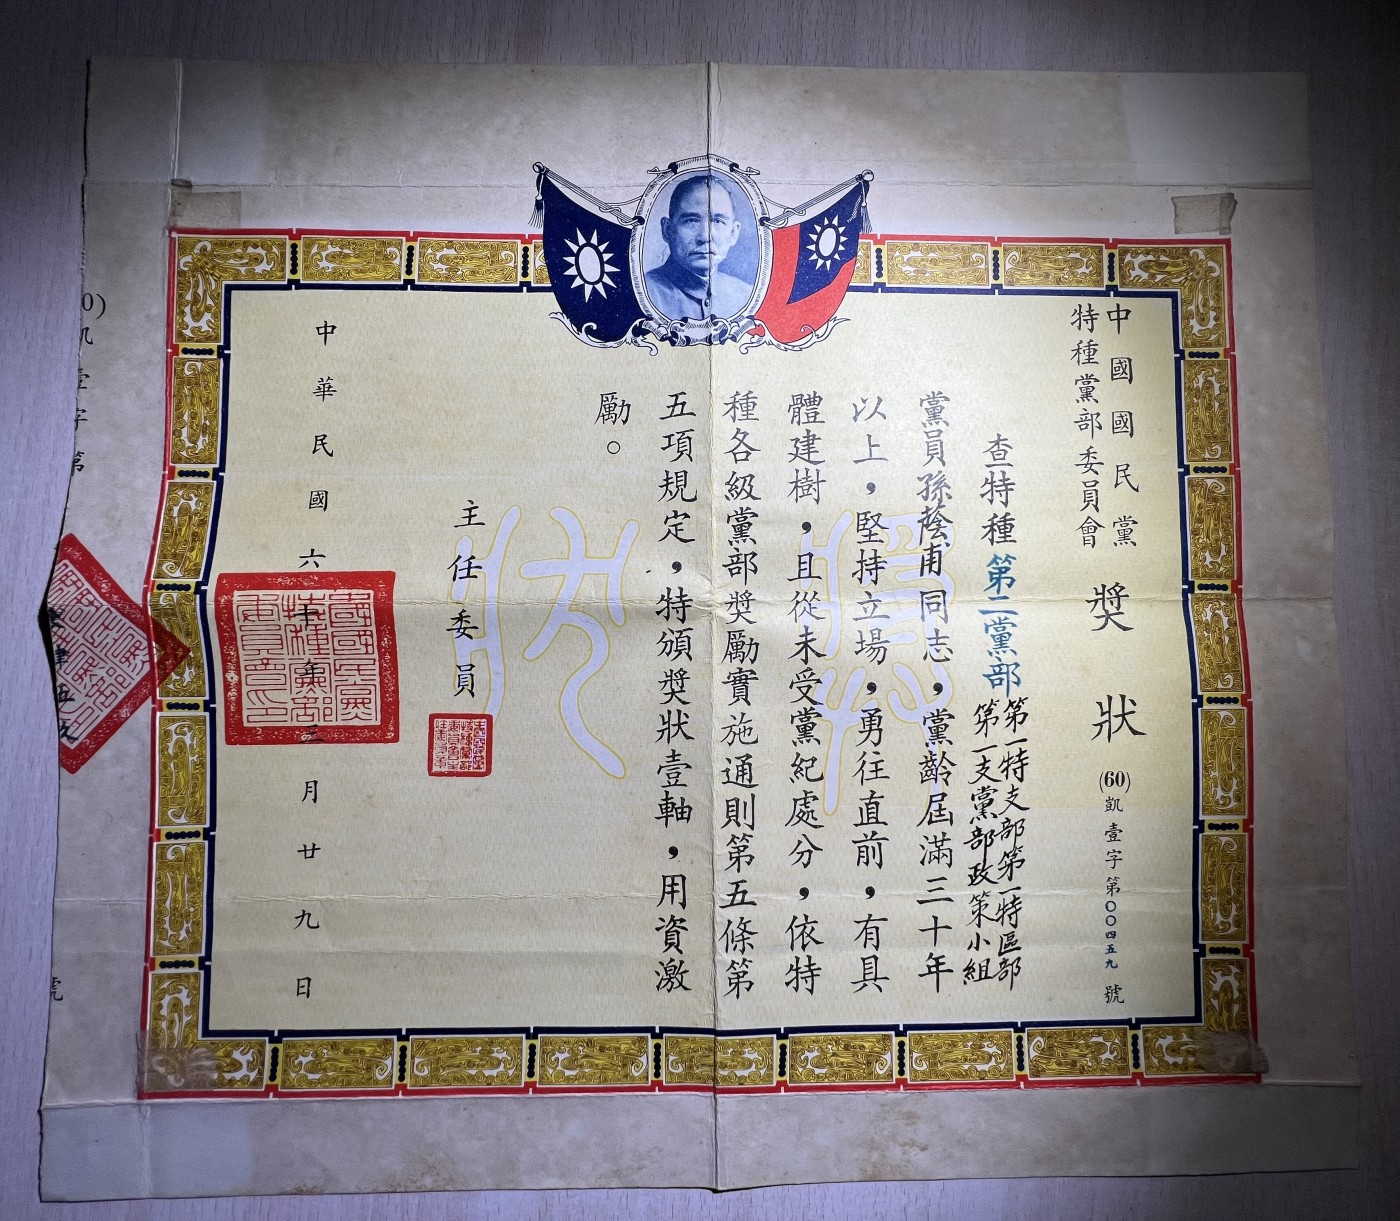 中國國民黨
特種黨部委員會
獎狀
(60)凱壹字第〇〇四五九號
查特種第二黨部第一特支部第一特區部
第一支黨部政策小組
黨員孫蔭甫同志，黨齡屆滿三十年
以上，堅持立場，勇往直前，有具
體建樹，且從未受黨紀處分，依特
種各級黨部獎勵實施通則第五條第
五項規定，特頒獎狀壹軸，用資激
勵。
獎狀
主任委員
中華民國六十年三月廿九日
0)凱壹字第
號